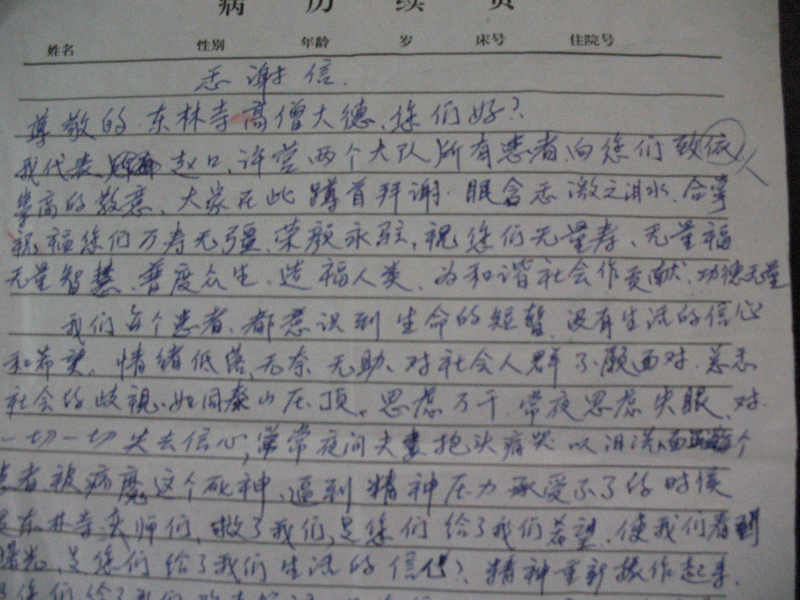 病 历 续 页
姓名 性别 年龄 岁 床号 住院号
感谢信.
尊敬的.东林寺高僧大德、您们好?
我代表 赵口,许堂两个大队所有患者向您们致依
崇高的敬意、大家在此 蹲首拜谢.眼含感激之泪水.合掌
祝福您们万寿无疆.荣颜永驻,祝您们无量寿、无量福
无量智慧、普度众生、造福人类、为和谐社会作贡献、功德无量
我们每个患者、都意识到生命的短暂、没有生活的信心
和希望、情绪低落、无奈无助、对社会人群不愿面对.总感
社会的歧视、如同泰山压顶。思虑万千.常夜思虑失眠、对
一切一切失去信心,常常夜间夫妻抱头痛哭以泪洗面 每个
患者被病魔这个死神、逼到精神压力承受不了的时候
是东林寺大师们、救了我们,是您们给了我们希望、使我们看到
曙光,是您们给了我们生活的信心?精神重新振作起来.
是您们给了我们